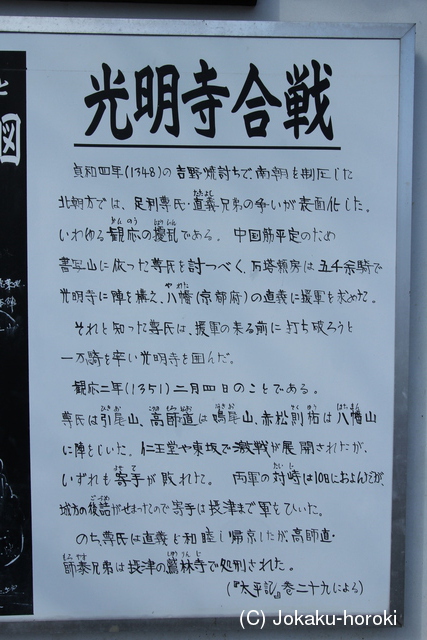 光明寺合戦
貞和四年(1348)の吉野焼討ちで南朝を制圧した
北朝方では、足利尊氏・直義兄弟の争いが表面化した。
いわゆる観応の擾乱である。 中国筋平定のため
書写山に依った尊氏を討つべく、石塔頼房は五千余騎で
光明寺に陣を構え、八幡(京都府)の直義に援軍を求めた。
それを知った尊氏は、援軍の来る前に打ち破ろうと
一万騎を率い光明寺を囲んだ。
観応二年(1351)二月四日のことである。
尊氏は引尾山、高師直は鳴尾山、赤松則祐は八幡山
に陣をしいた。仁王堂や東坂で激戦が展開されたが、
いずれも寄手が敗れた。 両軍の対峙は10日におよんだが、
城方の後詰がせまったので寄手は摂津まで軍をひいた。
のち、尊氏は直義と和睦し帰京したが、高師直・
師泰兄弟は摂津の鷲林寺で処刑された。
(『太平記』巻二十九による)
図
(C) Jokaku-horoki